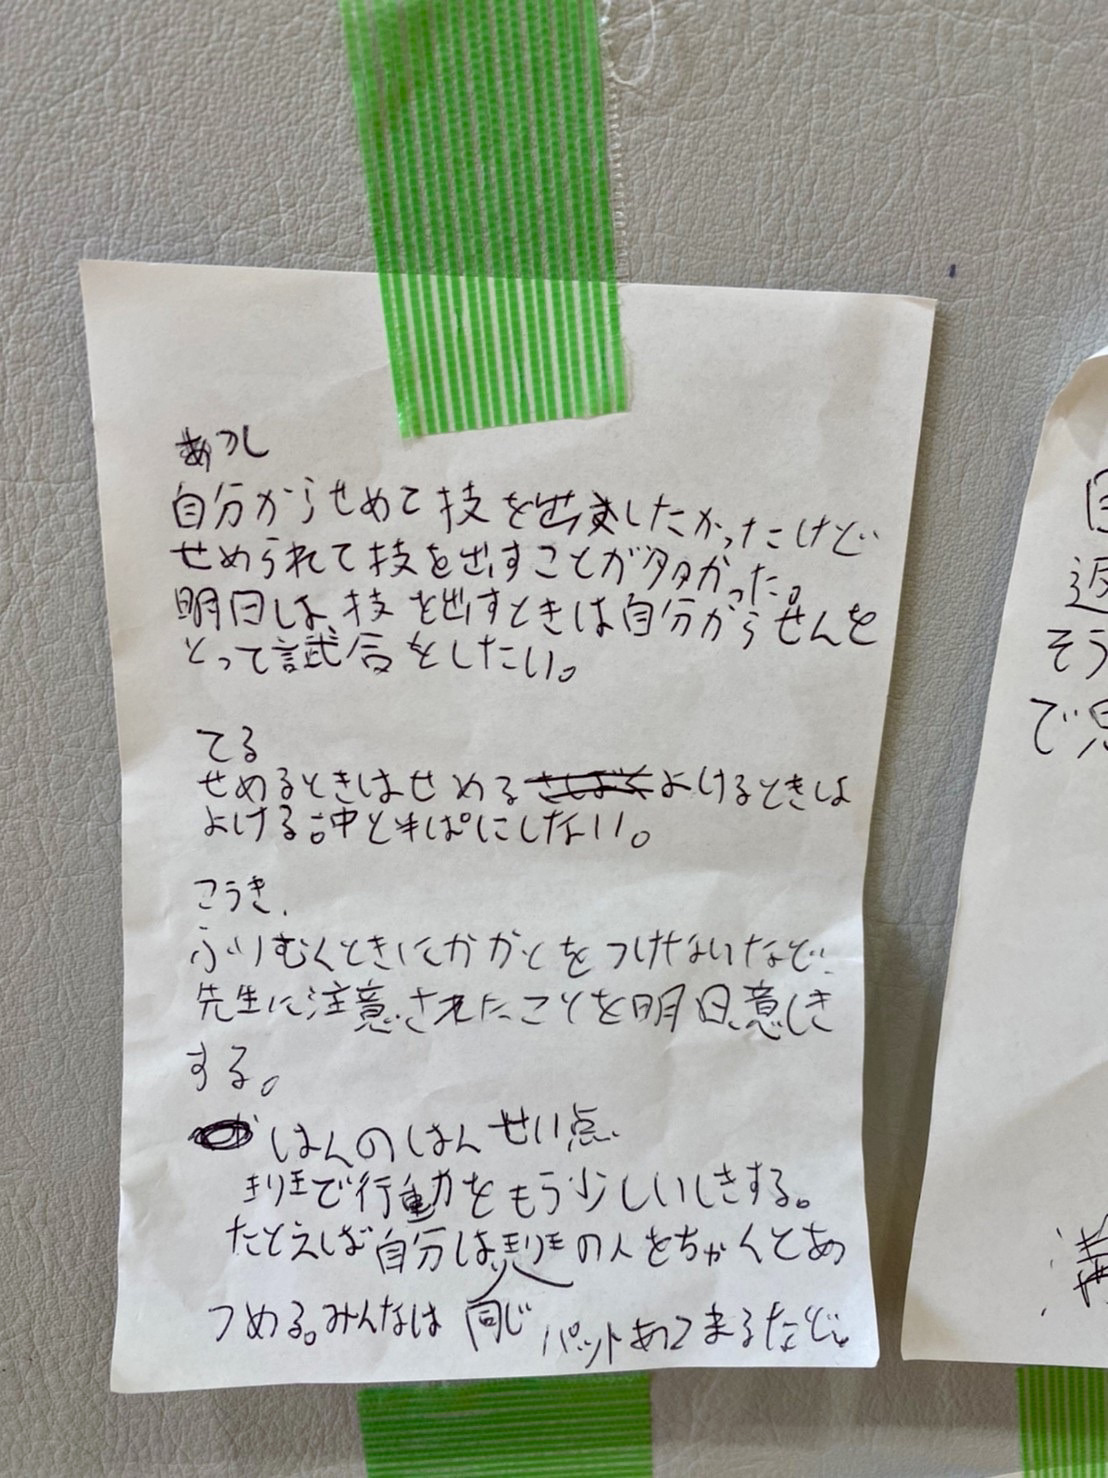 あつし
自分からせめて技を出したかったけど
せめられて技を出すことが多かった。
明日は、技を出すときは自分からせんを
とって試合をしたい。
てる
せめるときはせめる よけるときは
よける中と半ぱにしない。
こうき
ふりむくときにかかとをつけないなど
先生に注意されたことを明日、意しき
する。
はんのはんせい点
班で行動をもう少しいしきする。
たとえば自分は班の人をちゃんとあ
つめる。みんなは同じ
パットあつまるなど。
返
そう
で